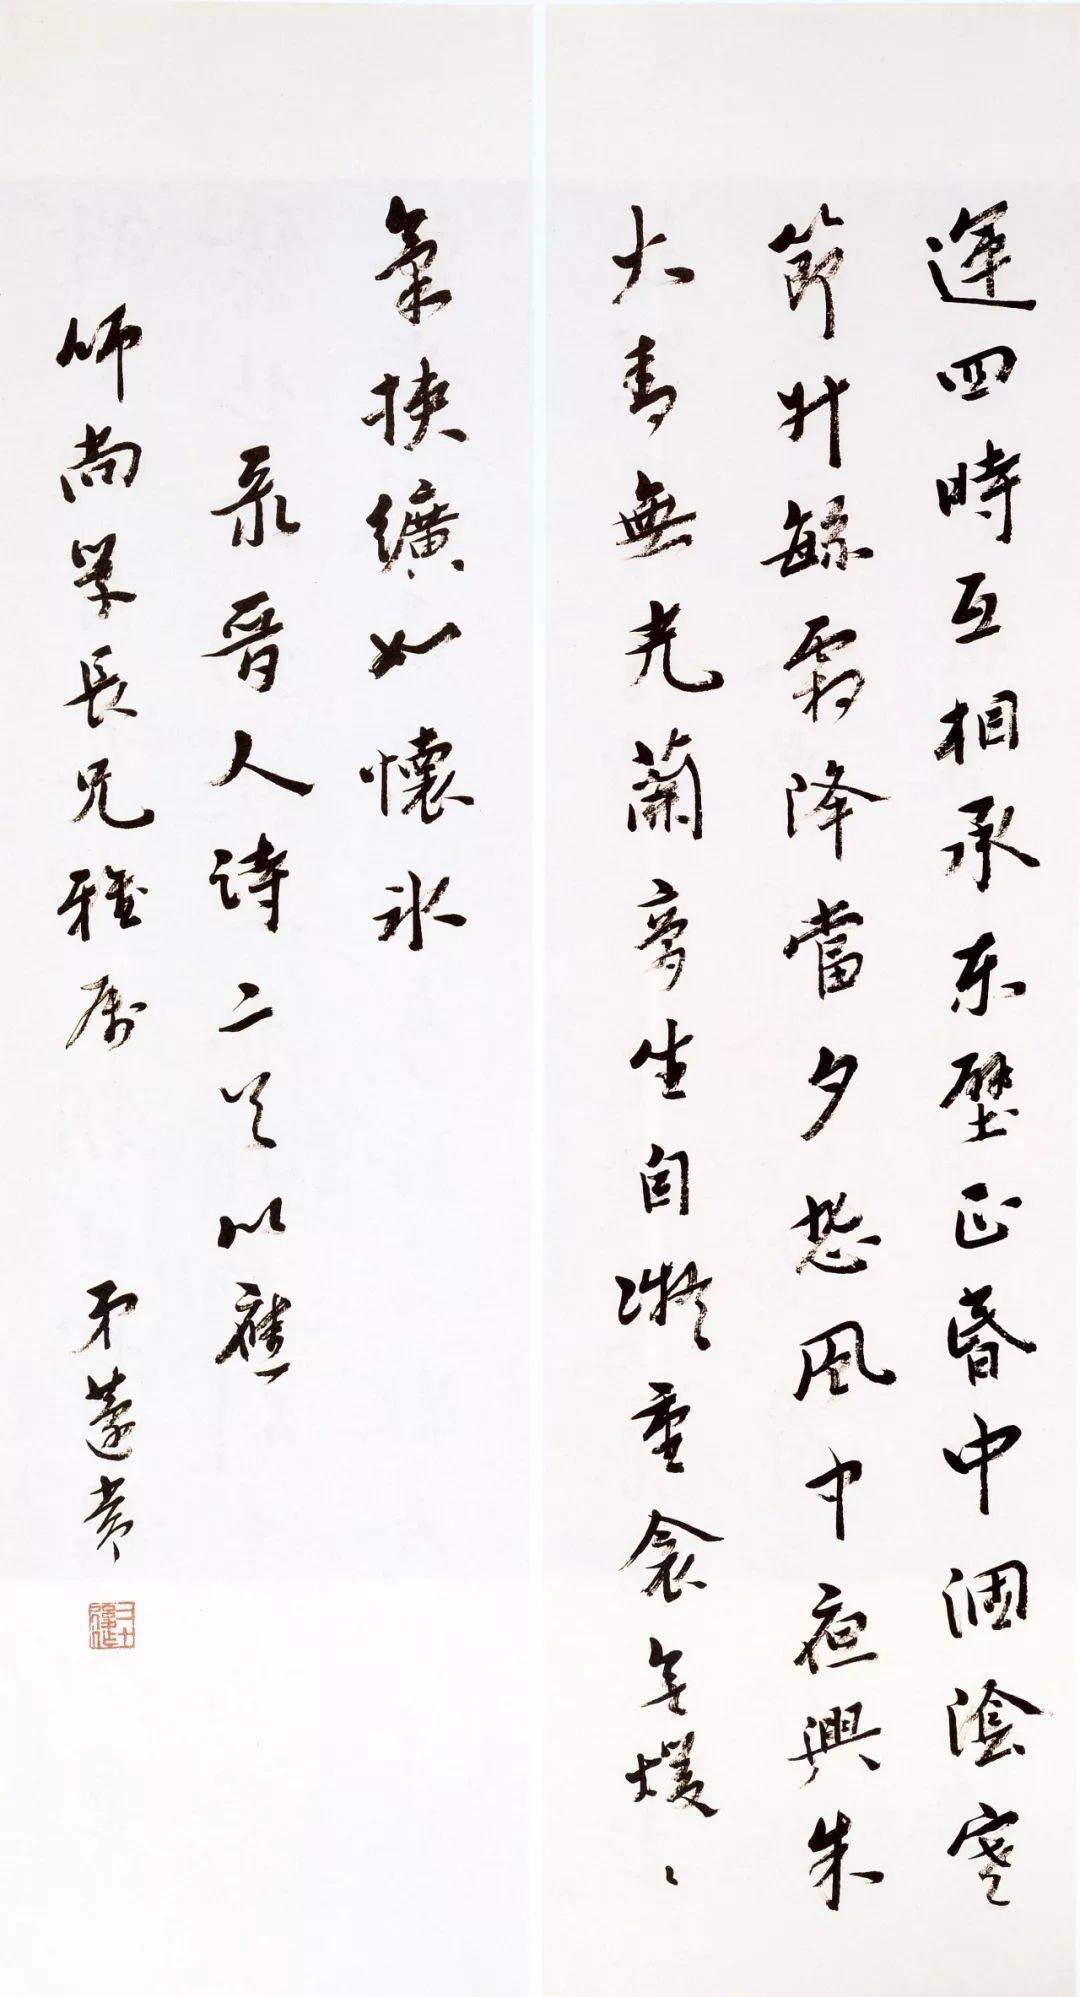 運四時互相承东壁正昏中涸陰寒
節升繁霜降當夕悲風中夜興朱
火青無光蘭膏坐自凝重衾無煖
氣挾纊如懷冰
录晉人诗二以應
師尚學長兄雅属 弟蘧常